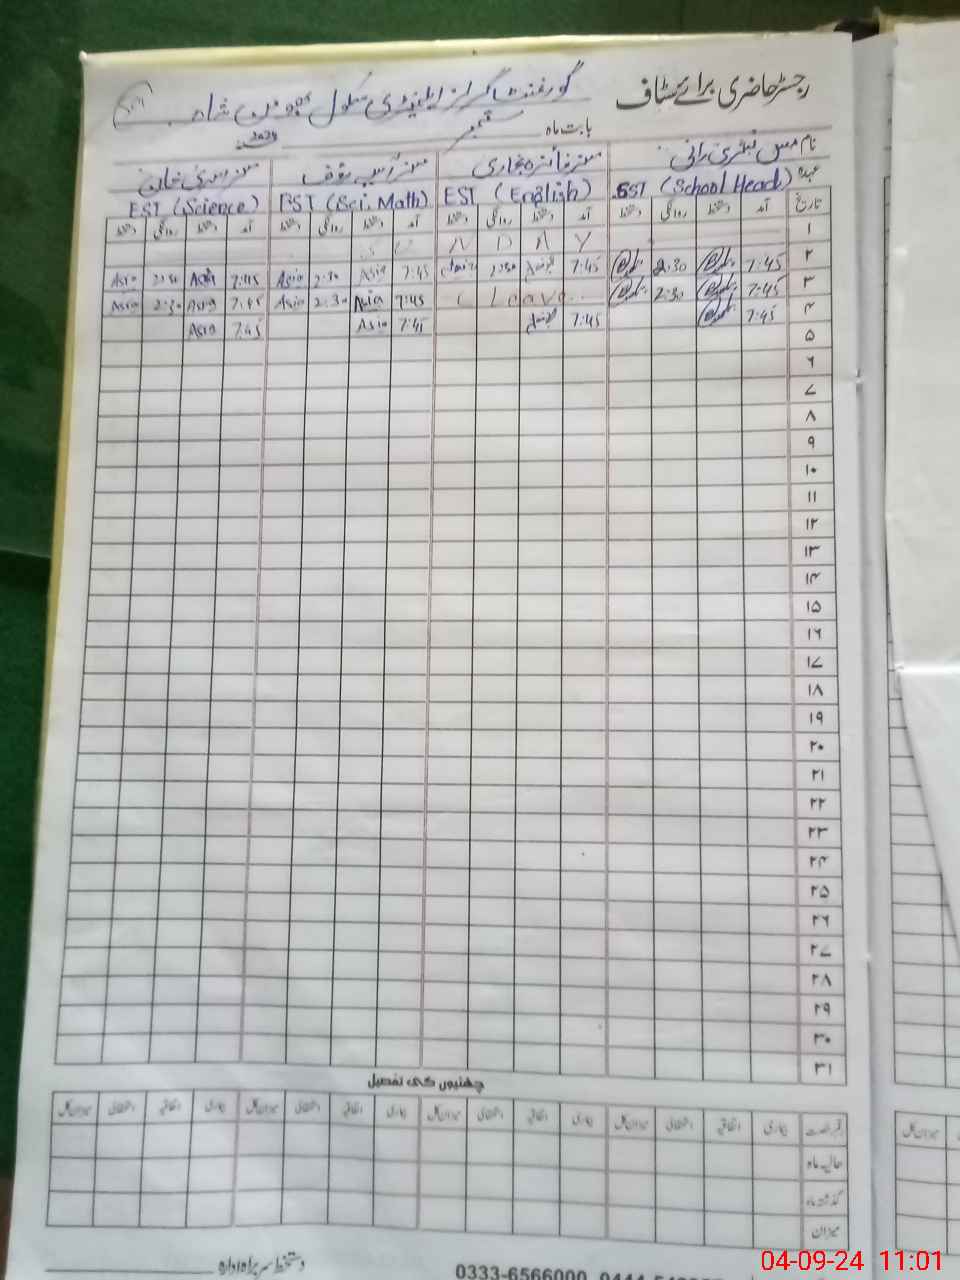 رجسٹر حاضری برائے سٹاف گورنمنٹ گرلز ایلیمنٹری سکول
بابت ماہ ستمبر 2024
نام مس
عہدہ SST (School Head) EST (English) EST (Sci. Math) EST (Science)
تاریخ آمد دستخط روانگی دستخط آمد دستخط روانگی دستخط آمد دستخط روانگی دستخط آمد دستخط روانگی دستخط
۱ S U N D A Y
۲ 7:45 2:30 7:45 2:30 7:45 Asia 2:30 Asia 7:45 Asia 2:30 Asia
۳ 7:45 2:30 Leave 7:45 Asia 2:30 Asia 7:45 Asia 2:30 Asia
۴ 7:45 7:45 7:45 Asia 7:45 Asia
۵
۶
۷
۸
۹
۱۰
۱۱
۱۲
۱۳
۱۴
۱۵
۱۶
۱۷
۱۸
۱۹
۲۰
۲۱
۲۲
۲۳
۲۴
۲۵
۲۶
۲۷
۲۸
۲۹
۳۰
۳۱
چھٹیوں کی تفصیل
بیماری اتفاقیہ استحقاقی میزان کل بیماری اتفاقیہ استحقاقی میزان کل بیماری اتفاقیہ استحقاقی میزان کل بیماری اتفاقیہ استحقاقی میزان کل
حالیہ ماہ
گذشتہ ماہ
میزان
دستخط سربراہ ادارہ
0333-6566000
04-09-24 11:01